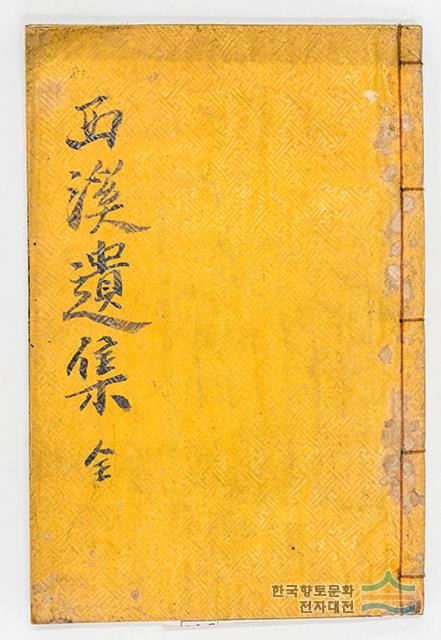 西溪遺集 全
한국향토문화
전자대전